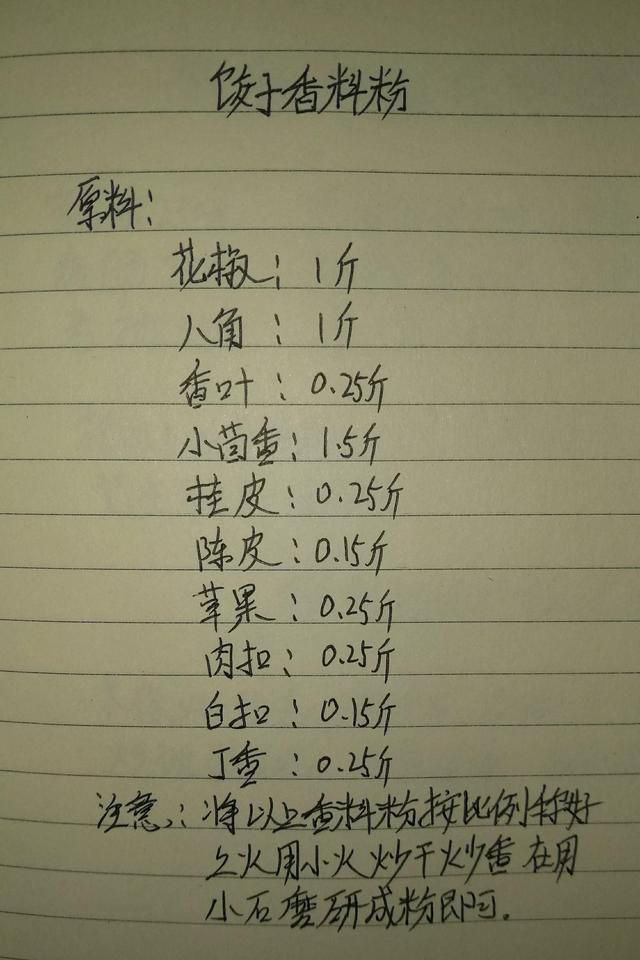 饺子香料粉
原料:
花椒: 1斤
八角: 1斤
香叶: 0.25斤
小茴香: 1.5斤
桂皮: 0.25斤
陈皮: 0.15斤
草果: 0.25斤
肉扣: 0.25斤
白扣: 0.15斤
丁香: 0.25斤
注意: 将以上香料粉按比例称好
上火用小火炒干炒香在用
小石磨研成粉即可.